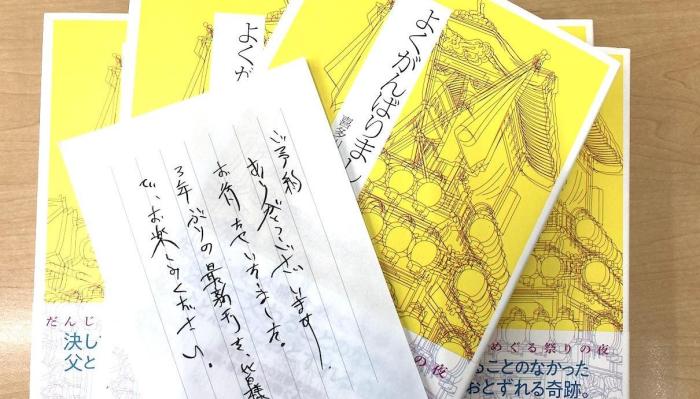 よくがんばりました
喜多
よくが
ご予約
ありがとうございます。
お待たせいたしました。
3年ぶりの最新刊を、皆様
で、お楽しみください。
だんじ
決し
父と
めぐる祭りの夜
ることのなかった
おとずれる奇跡。
の夜